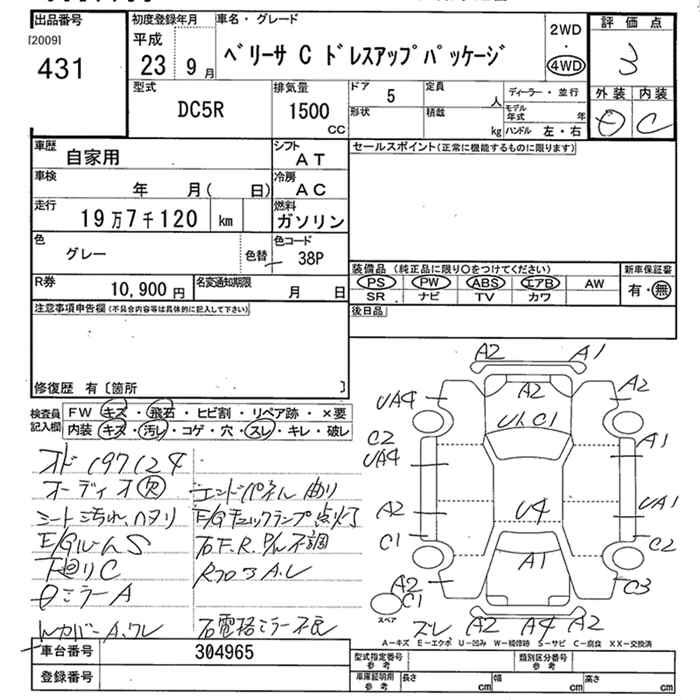 出品番号 初度登録年月 車名・グレード 2WD 評価点
[2009]
431
平成 23 9月 ベリーサ C ドレスアップパッケージ ・ 4WD 3
型式 排気量 ドア 5 定員 人 ディーラー・並行 外装 内装
DC5R 1500 CC 形状 積載 kg モデル年式 年 ハンドル 左・右 C
車歴 自家用 シフト AT セールスポイント(正常に機能するものに限ります)
車検 年 月( 日) 冷房 AC
走行 19万7千120 km 燃料 ガソリン
色 グレー 色替 色コード 38P
装備品(純正品に限り○をつけてください) 新車保証書
R券 10,900円 名変通知期限 月 日 PS PW ABS エアB AW 有・無
SR ナビ TV カワ
注意事項申告欄(不具合内容等は具体的に記入して下さい) 後日品
修復歴 有〔箇所 〕
検査員記入欄 FW キズ・飛石・ヒビ割・リペア跡・×要
内装 キズ・汚レ・コゲ・穴・スレ・キレ・破レ
オド197124
オーディオ欠 エンドパネル曲り
シート汚れ、ヘタリ E/Gチェックランプ点灯
E/GルームS 右F.R.P/W不調
下回りC
ミラーA
右電格ミラー不良
A2 A1
UA4 A2 A2
C2 U1.C1 A1
UA4
A2 U4 UA1
C1 A1 C2
A2 C1 C3
スペア ズレ A2 A4 A2
A-キズ E-エクボ U-凹み W-補修跡 S-サビ C-腐食 XX-交換済
車台番号 304965 型式指定番号 参考 類別区分番号 参考
登録番号 車庫証明用 参考 長さ cm 幅 cm 高さ cm